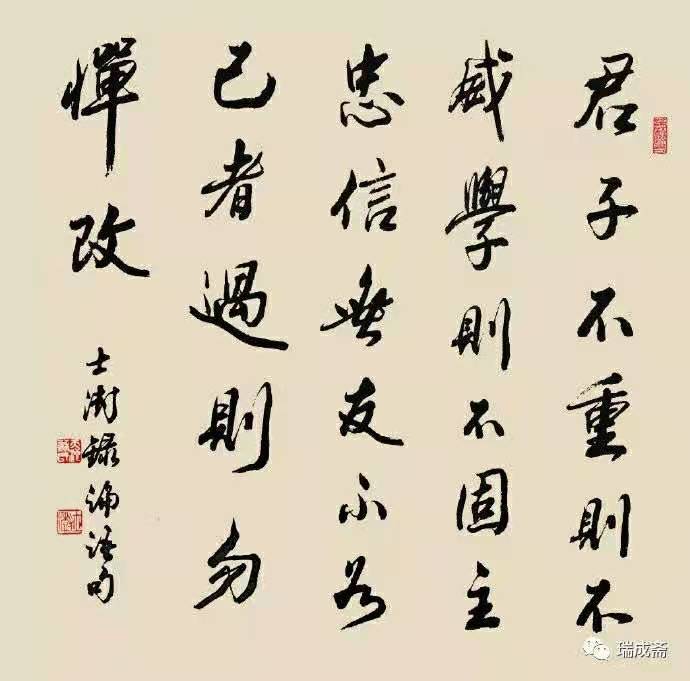 君子不重則不
威學則不固主
忠信無友不如
己者過則勿
憚改
士澍錄論語句
瑞成斋